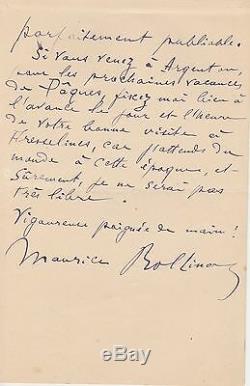 parfaitement publiable.
Si vous venez à Argenton
pour les prochaines vacances
de Pâques, fixez moi bien à
l'avance le jour et l'heure
de votre bonne visite à
Fresselines, car j'attends du
monde à cette époque, et
sûrement, je ne serai pas
très libre.
Vigoureuse poignée de main !
Maurice Rollinat